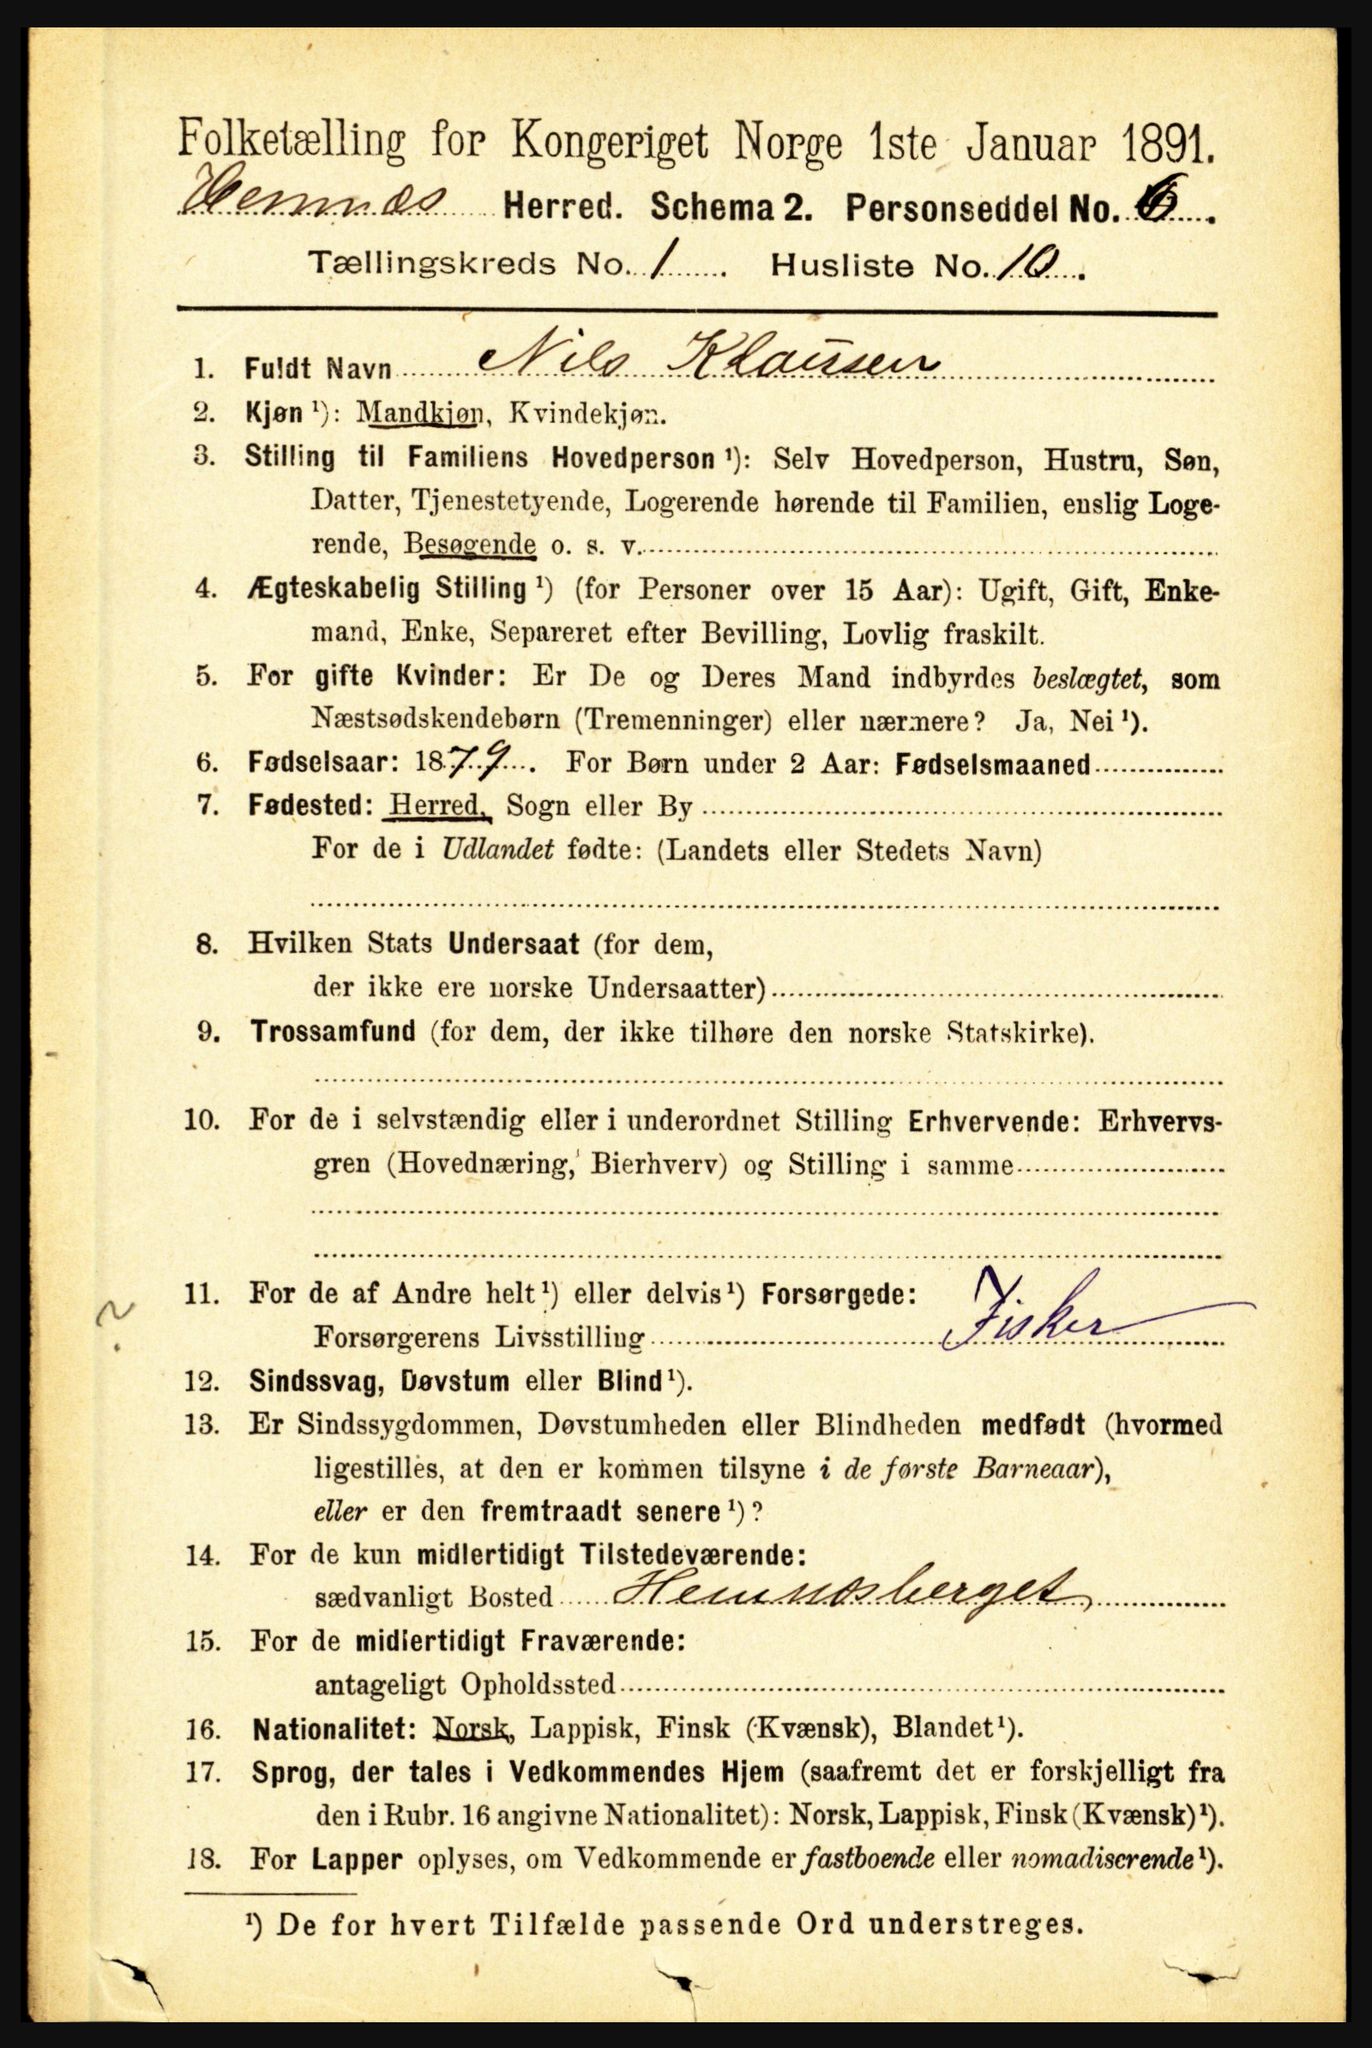 Folketælling for Kongeriget Norge 1ste Januar 1891.
Hemnæs Herred. Schema 2. Personseddel No. 6.
Tællingskreds No. 1. Husliste No. 10.
1. Fuldt Navn Nils Klausen
2. Kjøn ¹): Mandkjøn, Kvindekjøn.
3. Stilling til Familiens Hovedperson ¹): Selv Hovedperson, Hustru, Søn,
Datter, Tjenestetyende, Logerende hørende til Familien, enslig Loge-
rende, Besøgende o. s. v.
4. Ægteskabelig Stilling ¹) (for Personer over 15 Aar): Ugift, Gift, Enke-
mand, Enke, Separeret efter Bevilling, Lovlig fraskilt.
5. For gifte Kvinder: Er De og Deres Mand indbyrdes beslægtet, som
Næstsødskendebørn (Tremenninger) eller nærmere? Ja, Nei ¹).
6. Fødselsaar: 1879. For Børn under 2 Aar: Fødselsmaaned
7. Fødested: Herred, Sogn eller By
For de i Udlandet fødte: (Landets eller Stedets Navn)
8. Hvilken Stats Undersaat (for dem,
der ikke ere norske Undersaatter)
9. Trossamfund (for dem, der ikke tilhøre den norske Statskirke).
10. For de i selvstændig eller i underordnet Stilling Erhvervende: Erhvervs-
gren (Hovednæring, Bierhverv) og Stilling i samme
11. For de af Andre helt ¹) eller delvis ¹) Forsørgede:
Forsørgerens Livsstilling Fisker
12. Sindssvag, Døvstum eller Blind ¹).
13. Er Sindssygdommen, Døvstumheden eller Blindheden medfødt (hvormed
ligestilles, at den er kommen tilsyne i de første Barneaar),
eller er den fremtraadt senere ¹)?
14. For de kun midlertidigt Tilstedeværende:
sædvanligt Bosted Hemnæsberget
15. For de midlertidigt Fraværende:
antageligt Opholdssted
16. Nationalitet: Norsk, Lappisk, Finsk (Kvænsk), Blandet ¹).
17. Sprog, der tales i Vedkommendes Hjem (saafremt det er forskjelligt fra
den i Rubr. 16 angivne Nationalitet): Norsk, Lappisk, Finsk (Kvænsk) ¹).
18. For Lapper oplyses, om Vedkommende er fastboende eller nomadiserende ¹).
¹) De for hvert Tilfælde passende Ord understreges.
?